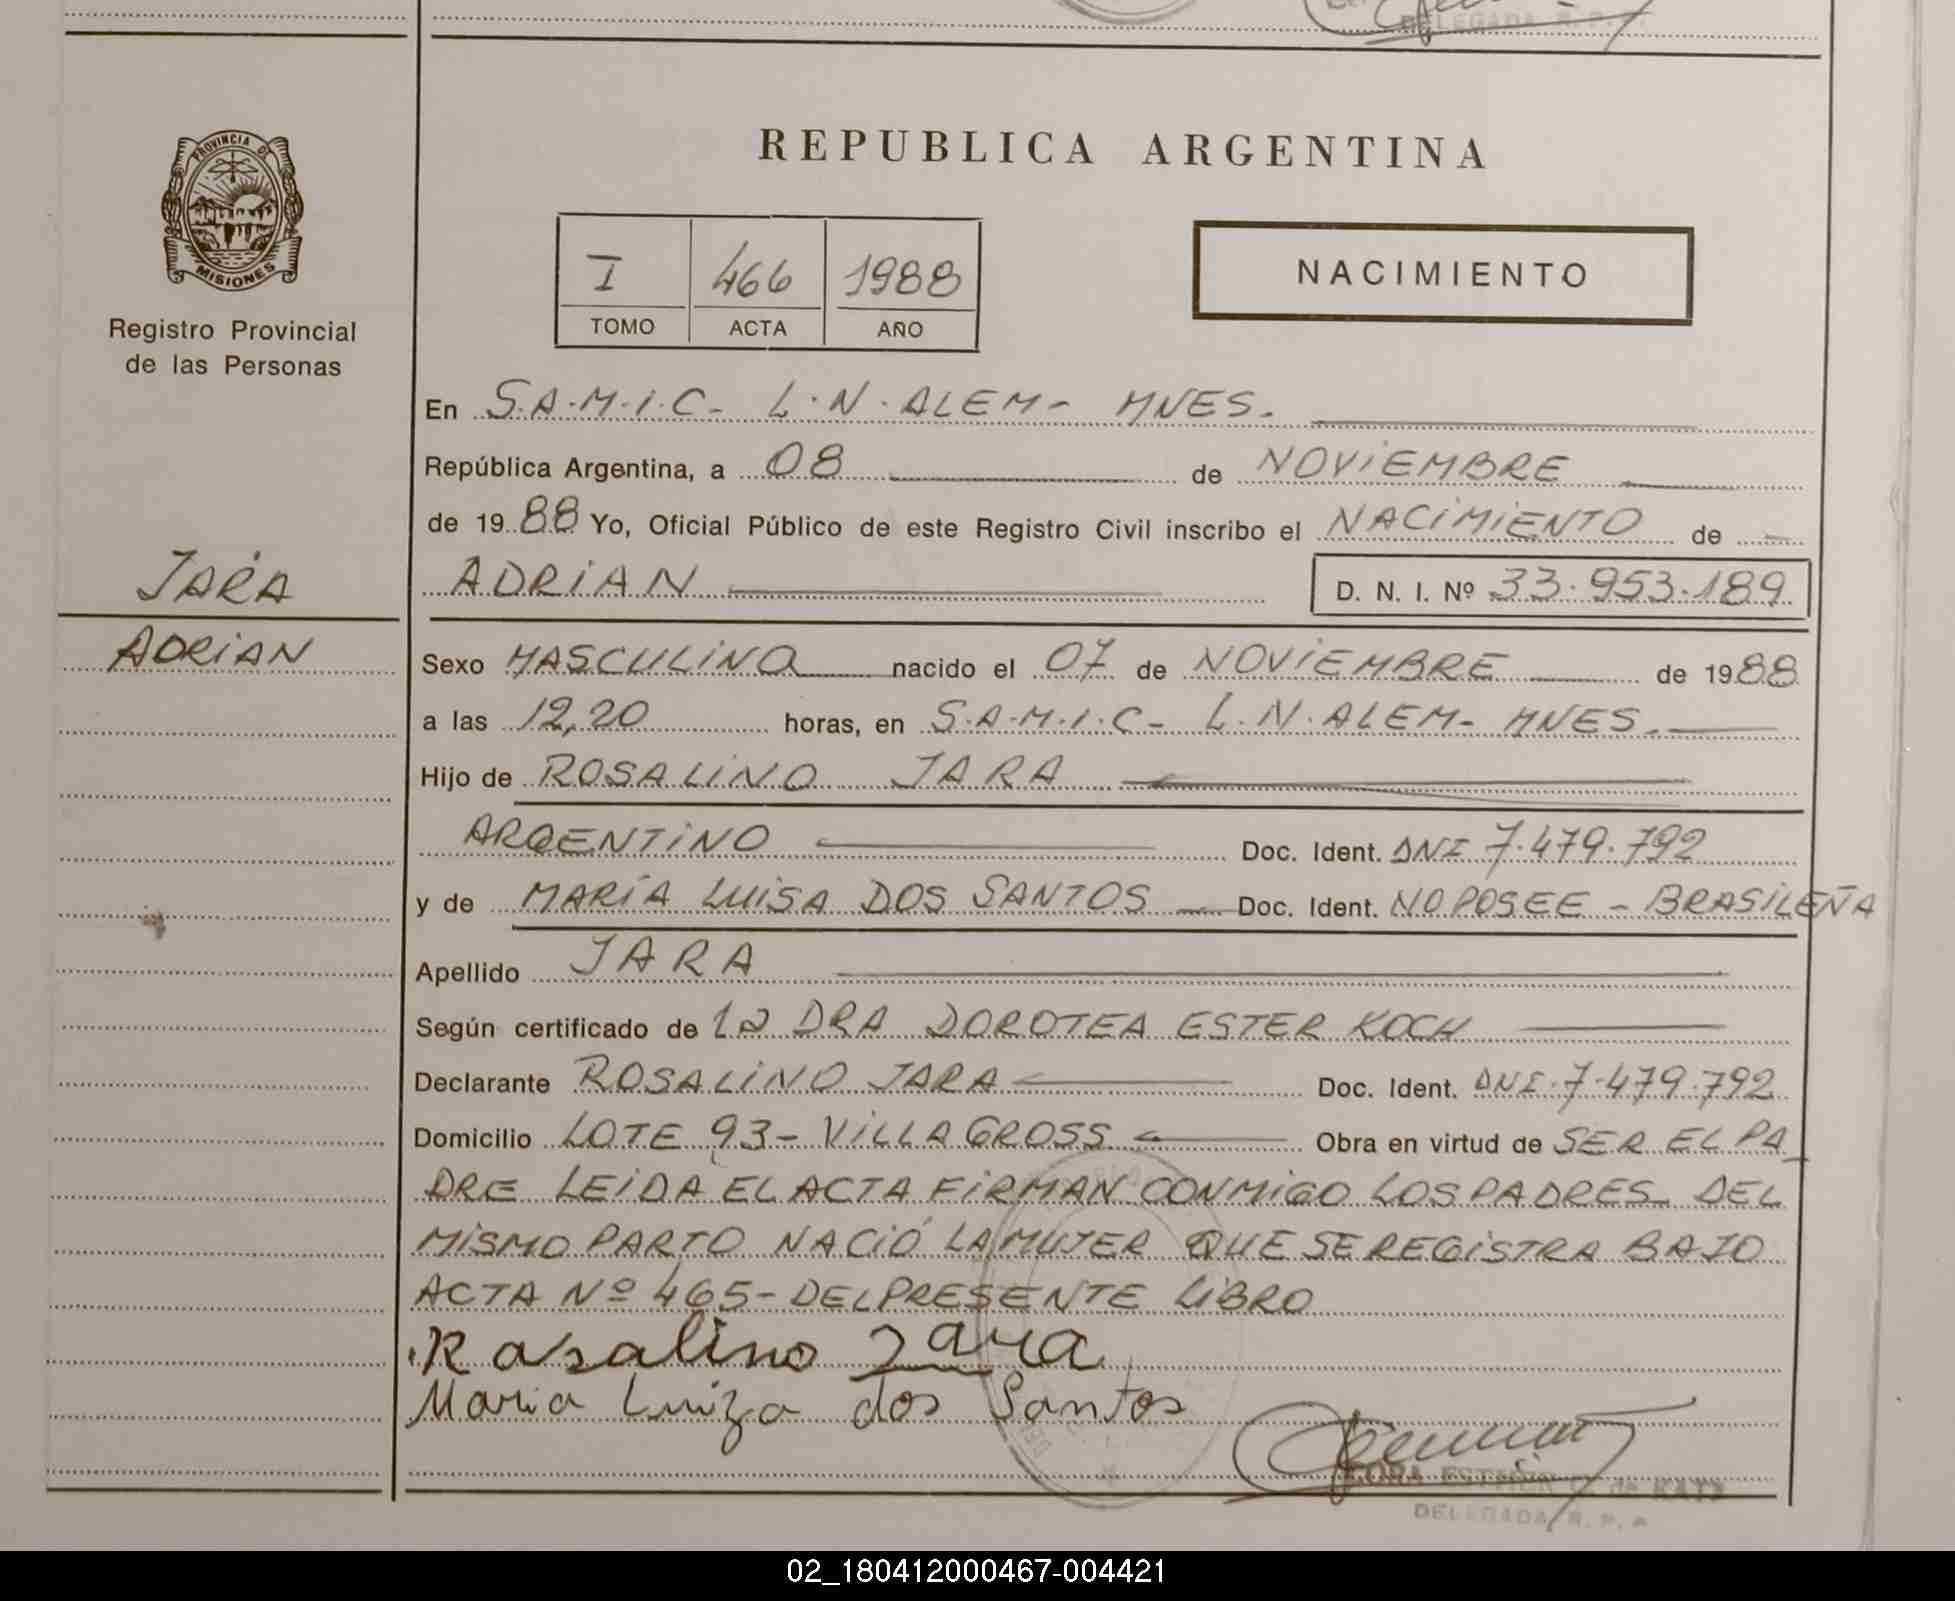 DELEGADA R. P. P.
REPUBLICA ARGENTINA
PROVINCIA DE
MISIONES
Registro Provincial
de las Personas
I 466 1988
TOMO ACTA AÑO
NACIMIENTO
En S.A.M.I.C- L.N.ALEM- MNES.
República Argentina, a 08 de NOVIEMBRE
de 1988 Yo, Oficial Público de este Registro Civil inscribo el NACIMIENTO de
JARA
ADRIAN D. N. I. Nº 33.953.189
ADRIAN
Sexo MASCULINO nacido el 07 de NOVIEMBRE de 1988
a las 12,20 horas, en S.A.M.I.C- L.N.ALEM- MNES.
Hijo de ROSALINO JARA
ARGENTINO Doc. Ident. DNI 7.479.792
y de MARÍA LUISA DOS SANTOS Doc. Ident. NO POSEE - BRASILEÑA
Apellido JARA
Según certificado de la DRA DOROTEA ESTER KOCH
Declarante ROSALINO JARA Doc. Ident. DNI.7.479.792
Domicilio LOTE 93- VILLA GROSS Obra en virtud de SER EL PA
DRE LEIDA EL ACTA FIRMAN CONMIGO LOS PADRES. DEL
MISMO PARTO NACIÓ LA MUJER QUE SE REGISTRA BAJO
ACTA Nº 465- DEL PRESENTE LIBRO
Rosalino Jara
Maria Luiza dos Santos
de KATZ
DELEGADA R. P. P.
02_180412000467-004421